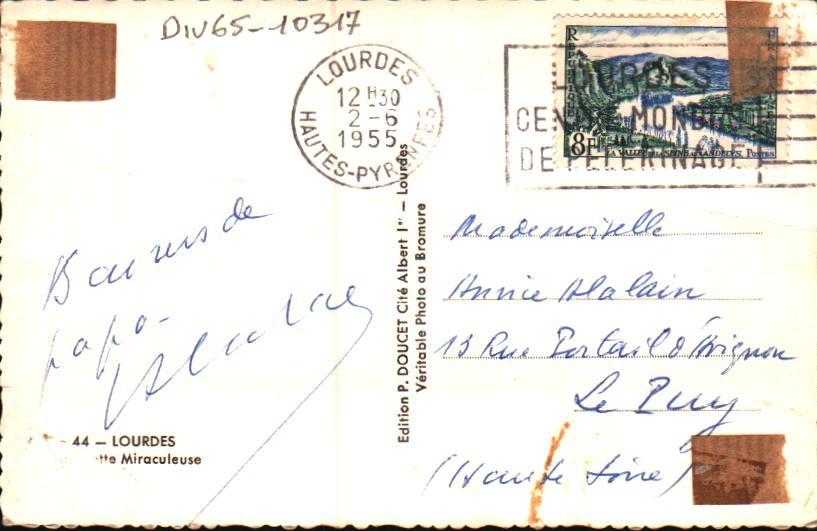 Div65-10317
LOURDES
12 H30
2-6
1955
HAUTES-PYRENEES
LOURDES
CENTRE MONDIAL
DE PELERINAGE
REPUBLIQUE
8F
LA VALLEE DE LA SEINE AUX ANDELYS
POSTES
Bons baisers de
papa
44 — LOURDES
tte Miraculeuse
Edition P. DOUCET Cité Albert Iᵉʳ — Lourdes
Véritable Photo au Bromure
Mademoiselle
Annie
13 Rue Portail d'Avignon
Le Puy
(Haute Loire)